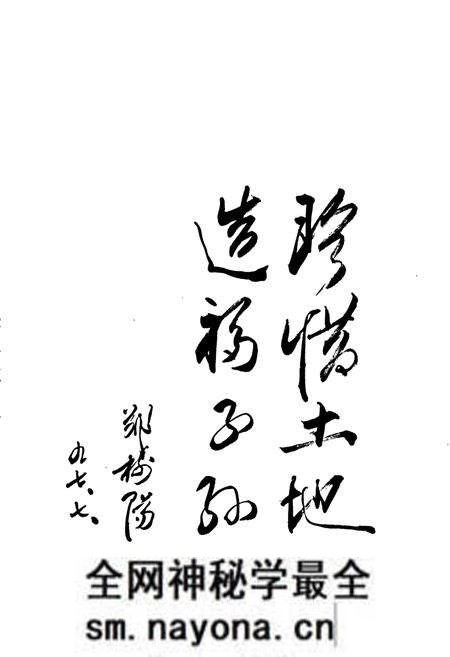 珍惜土地
造福子孙
郑陽
九七、七、
全网神秘学最全
sm.nayona.cn